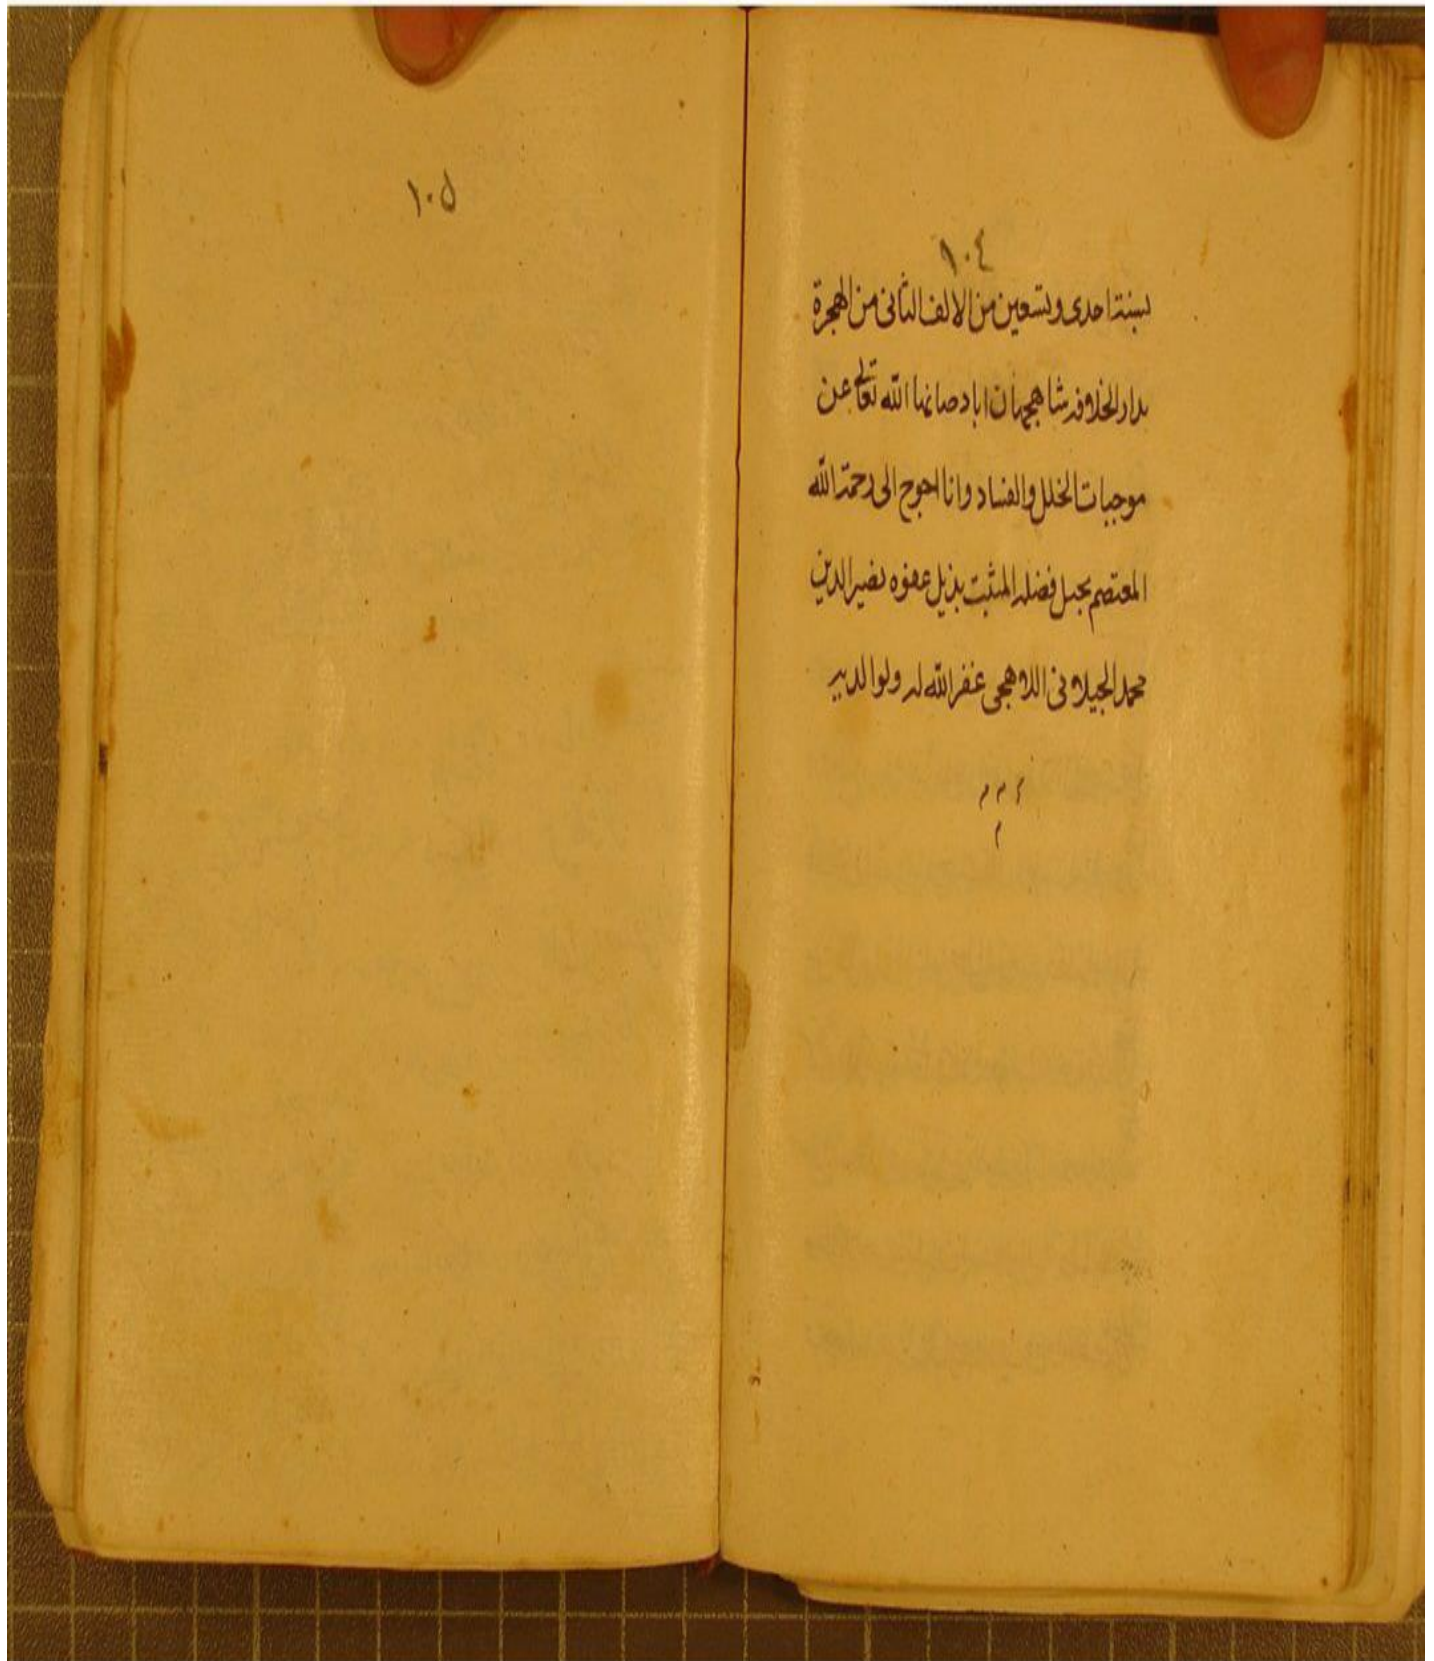 ١٠٤
لسنة احدى وتسعين من الالف الثانى من الهجرة
بدار الخلافه شاهجهان اباد صانها الله تعالى عن
موجبات الخلل والفساد وانا احوج الى رحمة الله
المعتصم بحبل فضله المتثبت بذيل عفوه نصير الدين
محمد الجيلانى اللاهجى غفر الله له ولوالديه
م م م
م
١٠٥